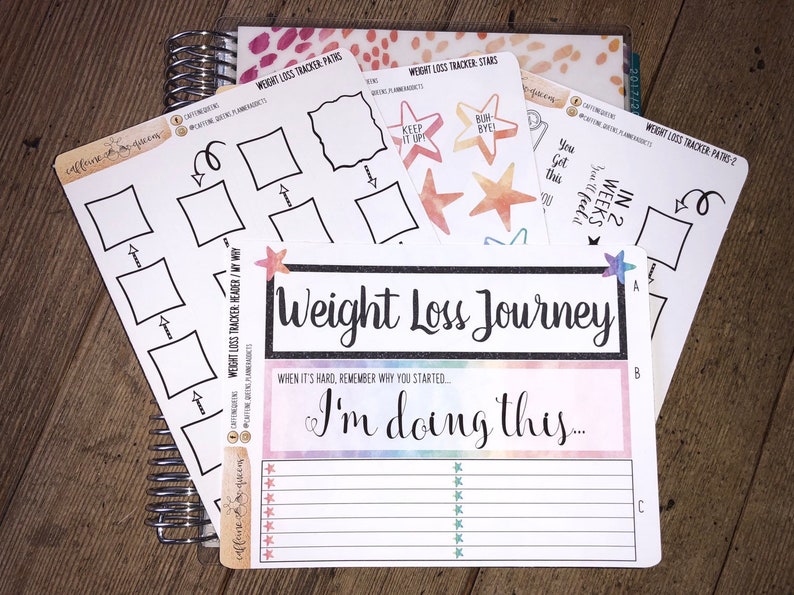 WEIGHT LOSS TRACKER: PATHS
CAFFEINEQUEENS
@CAFFEINE_QUEENS_PLANNERADDICTS
caffeine queens
WEIGHT LOSS TRACKER: STARS
@CAFFEINE_QUEENS_PLANNERADDICTS
KEEP
IT UP!
BUH-
BYE!
WEIGHT LOSS TRACKER: PATHS-2
CAFFEINEQUEENS
@CAFFEINE_QUEENS_PLANNERADDICTS
queens
You
Got
This
IN 2
WEEKS
You'll feel it
YOU
2017/2
WEIGHT LOSS TRACKER: HEADER / MY WHY
CAFFEINEQUEENS
@CAFFEINE_QUEENS_PLANNERADDICTS
caffeine queens
Weight Loss Journey
A
WHEN IT'S HARD, REMEMBER WHY YOU STARTED...
I'm doing this...
B
C